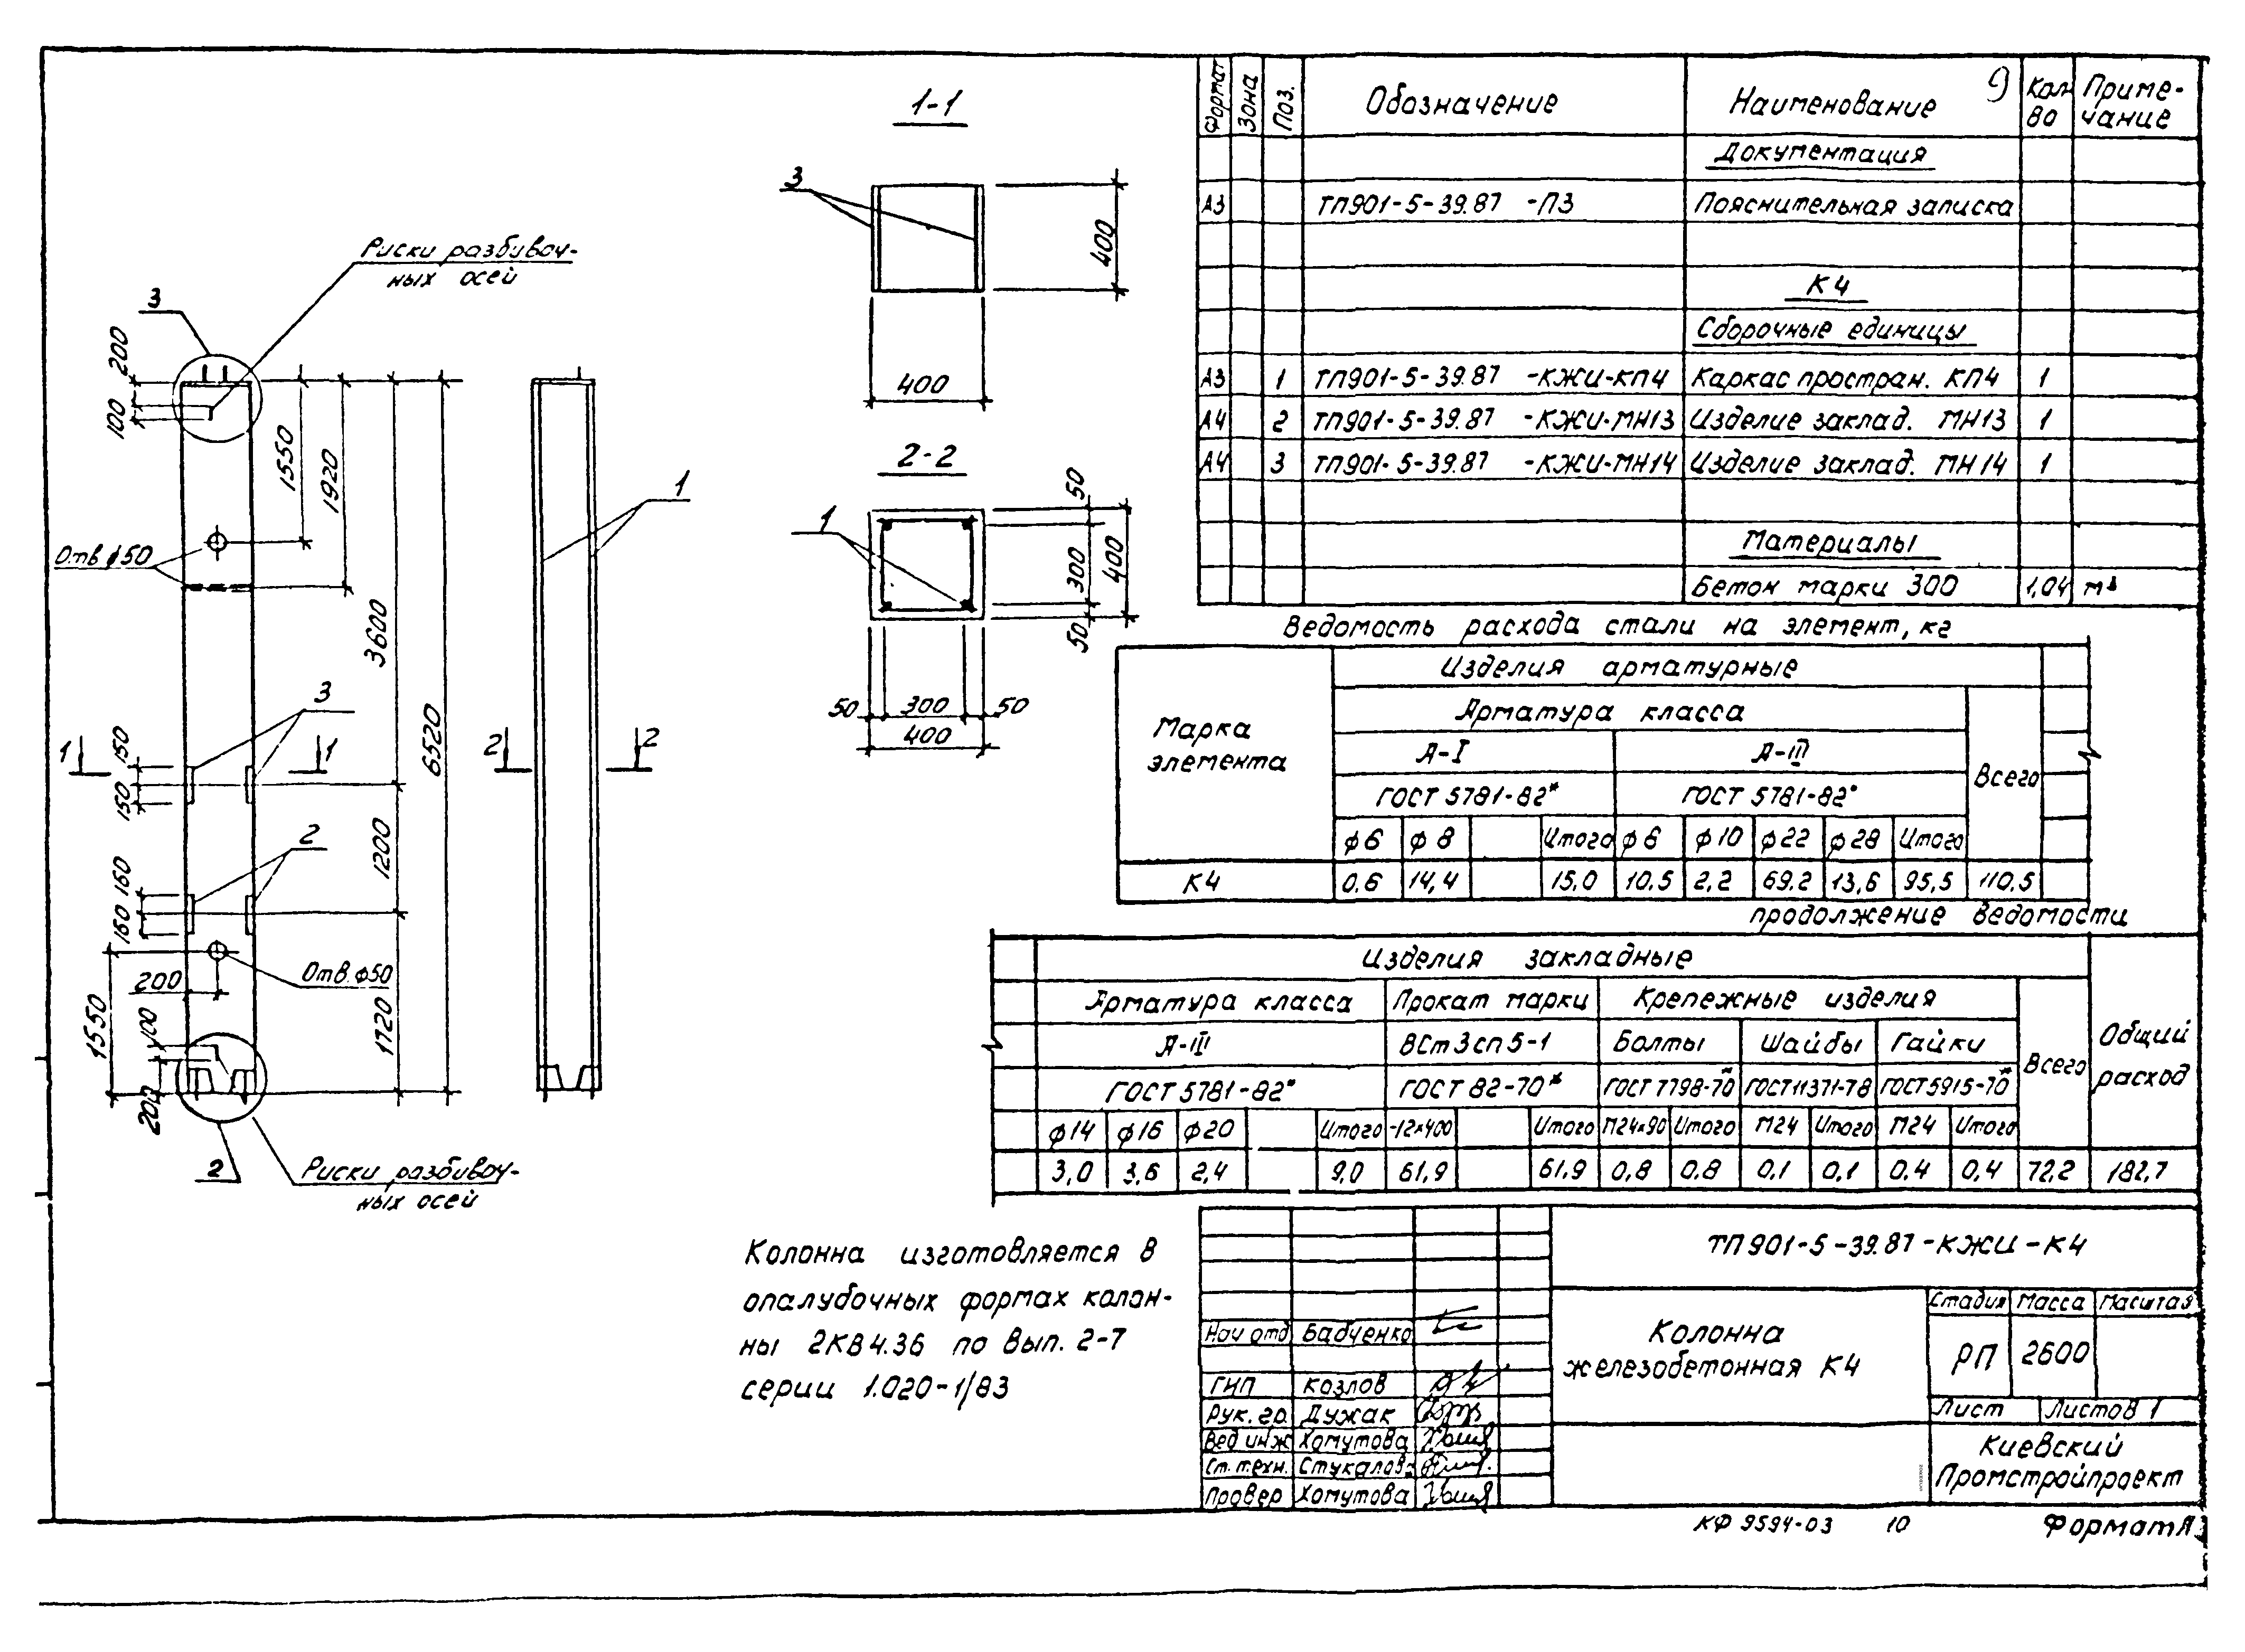 1-1
3
400
400
2-2
1
50
300
50
400
50
300
50
400
Риски разбивоч-
ных осей
3
200
100
1550
1920
3600
6520
Отв ф50
3
1
1
150
150
2
1200
160
160
Отв. ф50
200
1550
100
1720
200
2
Риски разбивоч-
ных осей
1
2
2
Формат Зона Поз. Обозначение Наименование Кол-во Приме-чание
Документация
А3 ТП901-5-39.87 -ПЗ Пояснительная записка
К4
Сборочные единицы
А3 1 ТП901-5-39.87 -КЖИ-КП4 Каркас простран. КП4 1
А4 2 ТП901-5-39.87 -КЖИ-МН13 Изделие заклад. МН13 1
А4 3 ТП901-5-39.87 -КЖИ-МН14 Изделие заклад. МН14 1
Материалы
Бетон марки 300 1,04 м³
Ведомость расхода стали на элемент, кг
Марка элемента
Изделия арматурные
Арматура класса
А-I А-III Всего
ГОСТ 5781-82* ГОСТ 5781-82*
ф6 ф8 Итого ф6 ф10 ф22 ф28 Итого
К4 0,6 14,4 15,0 10,5 2,2 69.2 13,6 95,5 110,5
продолжение ведомости
Изделия закладные
Арматура класса Прокат марки Крепежные изделия
А-III ВСт3сп5-1 Болты Шайбы Гайки Всего Общий расход
ГОСТ 5781-82* ГОСТ 82-70* ГОСТ 7798-70* ГОСТ 11371-78 ГОСТ 5915-70*
ф14 ф16 ф20 Итого -12×400 Итого М24×90 Итого М24 Итого М24 Итого
3,0 3,6 2,4 9,0 61,9 61,9 0,8 0,8 0,1 0,1 0,4 0,4 72,2 182,7
Колонна изготовляется в
опалубочных формах колон-
ны 2КВ4.36 по вып. 2-7
серии 1.020-1/83
ТП901-5-39.87-КЖИ-К4
Нач отд Бабченко
ГИП Козлов
Рук. гр. Дужак
Вед инж Хомутова
Ст. техн. Стукалова
Провер Хомутова
Колонна
железобетонная К4
Стадия Масса Масштаб
РП 2600
Лист Листов 1
Киевский
Промстройпроект
КФ 9594-03 10 Формат А3